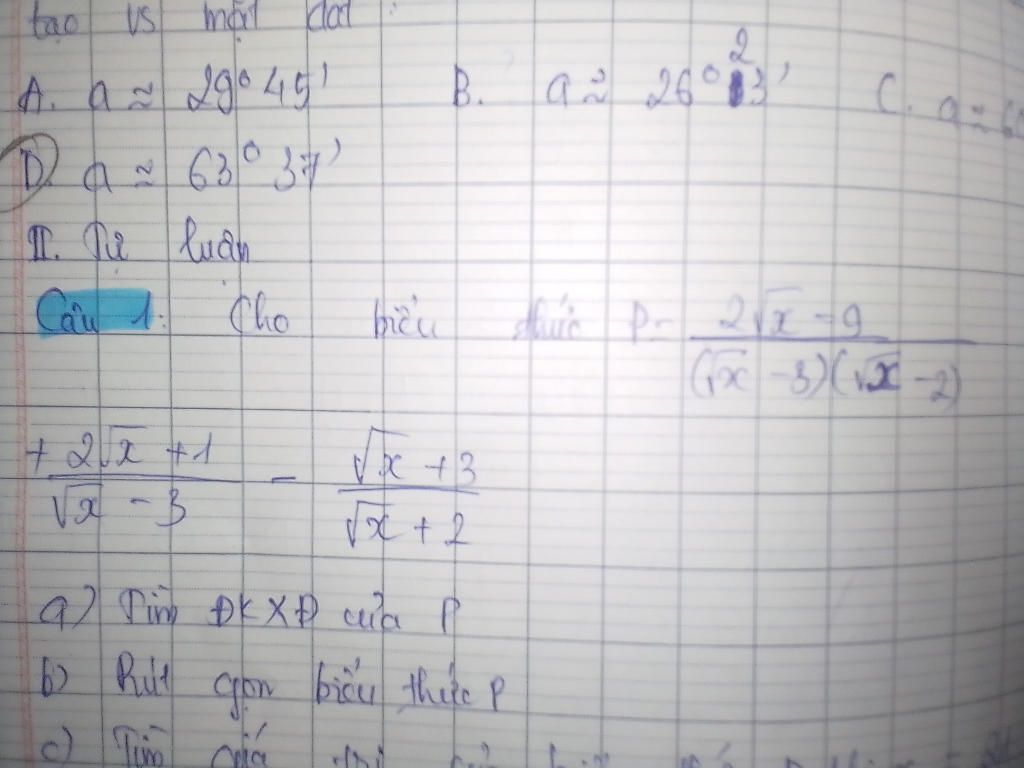 tạo vs mặt đất :
A. a ≈ 29° 45' B. a ≈ 26° 23' C. a ≈ 60
D. a ≈ 63° 37'
II. Tự luận
Câu 1: Cho biểu thức P = (2√x - 9)/((√x - 3)(√x - 2))
+ (2√x + 1)/(√x - 3) - (√x + 3)/(√x + 2)
a) Tìm ĐKXĐ của P
b) Rút gọn biểu thức P
c) Tìm giá trị